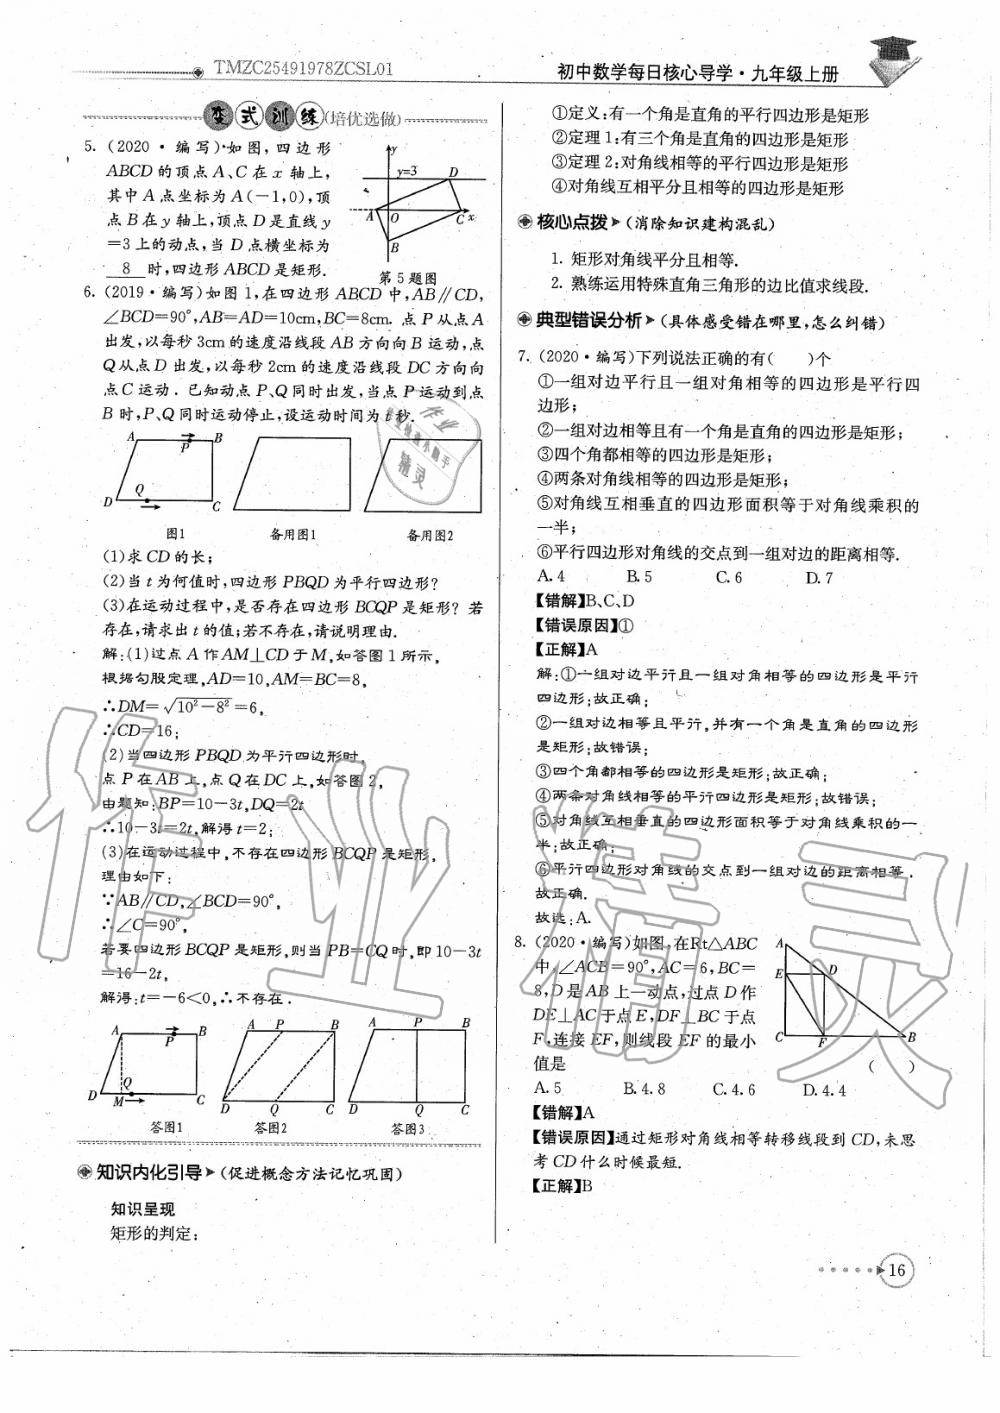 TMZC25491978ZCSL01
初中数学每日核心导学·九年级上册
变式训练(培优选做)
5. (2020·编写)如图,四边形
ABCD的顶点A、C在x轴上,
其中A点坐标为A(-1,0),顶
点B在y轴上,顶点D是直线y
=3上的动点,当D点横坐标为
8 时,四边形ABCD是矩形.
y
y=3
D
A
O
C
x
B
第5题图
6. (2019·编写)如图1,在四边形ABCD中,AB∥CD,
∠BCD=90°,AB=AD=10cm,BC=8cm. 点P从点A
出发,以每秒3cm的速度沿线段AB方向向B运动,点
Q从点D出发,以每秒2cm的速度沿线段DC方向向
点C运动. 已知动点P、Q同时出发,当点P运动到点
B时,P、Q同时运动停止,设运动时间为t秒.
A P B
D Q C
图1 备用图1 备用图2
(1)求CD的长;
(2)当t为何值时,四边形PBQD为平行四边形?
(3)在运动过程中,是否存在四边形BCQP是矩形? 若
存在,请求出t的值;若不存在,请说明理由.
解:(1)过点A作AM⊥CD于M,如答图1所示,
根据勾股定理,AD=10,AM=BC=8,
∴DM=√10²-8²=6,
∴CD=16;
(2)当四边形PBQD为平行四边形时,
点P在AB上,点Q在DC上,如答图2,
由题知:BP=10-3t,DQ=2t
∴10-3t=2t,解得t=2;
(3)在运动过程中,不存在四边形BCQP是矩形,
理由如下:
∵AB∥CD,∠BCD=90°,
∴∠C=90°,
若要四边形BCQP是矩形,则当PB=CQ时,即10-3t
=16-2t,
解得:t=-6<0,∴不存在.
A P B A P B A P B
D M Q C D Q C D Q C
答图1 答图2 答图3
知识内化引导(促进概念方法记忆巩固)
知识呈现
矩形的判定:
①定义:有一个角是直角的平行四边形是矩形
②定理1:有三个角是直角的四边形是矩形
③定理2:对角线相等的平行四边形是矩形
④对角线互相平分且相等的四边形是矩形
核心点拨(消除知识建构混乱)
1. 矩形对角线平分且相等.
2. 熟练运用特殊直角三角形的边比值求线段.
典型错误分析(具体感受错在哪里,怎么纠错)
7. (2020·编写)下列说法正确的有( )个
①一组对边平行且一组对角相等的四边形是平行四
边形;
②一组对边相等且有一个角是直角的四边形是矩形;
③四个角都相等的四边形是矩形;
④两条对角线相等的四边形是矩形;
⑤对角线互相垂直的四边形面积等于对角线乘积的
一半;
⑥平行四边形对角线的交点到一组对边的距离相等.
A. 4 B. 5 C. 6 D. 7
【错解】B、C、D
【错误原因】①
【正解】A
解:①一组对边平行且一组对角相等的四边形是平行
四边形;故正确;
②一组对边相等且平行,并有一个角是直角的四边形
是矩形;故错误;
③四个角都相等的四边形是矩形;故正确;
④两条对角线相等的平行四边形是矩形;故错误;
⑤对角线互相垂直的四边形面积等于对角线乘积的一
半;故正确;
⑥平行四边形对角线的交点到一组对边的距离相等.
故正确.
故选:A.
8. (2020·编写)如图,在Rt△ABC
中,∠ACB=90°,AC=6,BC=
8,D是AB上一动点,过点D作
DE⊥AC于点E,DF⊥BC于点
F,连接EF,则线段EF的最小
值是 ( )
A
E D
C F B
A. 5 B. 4.8 C. 4.6 D. 4.4
【错解】A
【错误原因】通过矩形对角线相等转移线段到CD,未思
考CD什么时候最短.
【正解】B
16
作业精灵